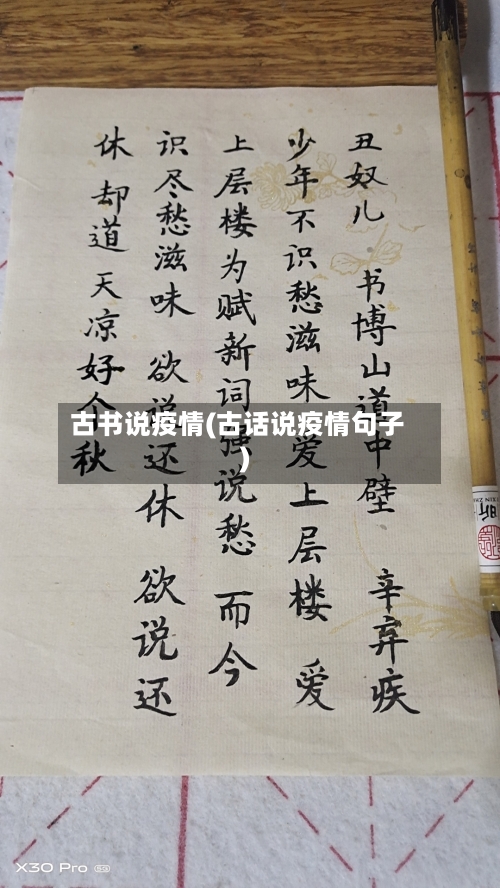 丑奴儿 书博山道中壁 辛弃疾
少年不识愁滋味 爱上层楼 爱
上层楼为赋新词强说愁 而今
识尽愁滋味 欲说还休 欲说还
休 却道天凉好个秋
古书说疫情(古话说疫情句子
)
X30 Pro 5G